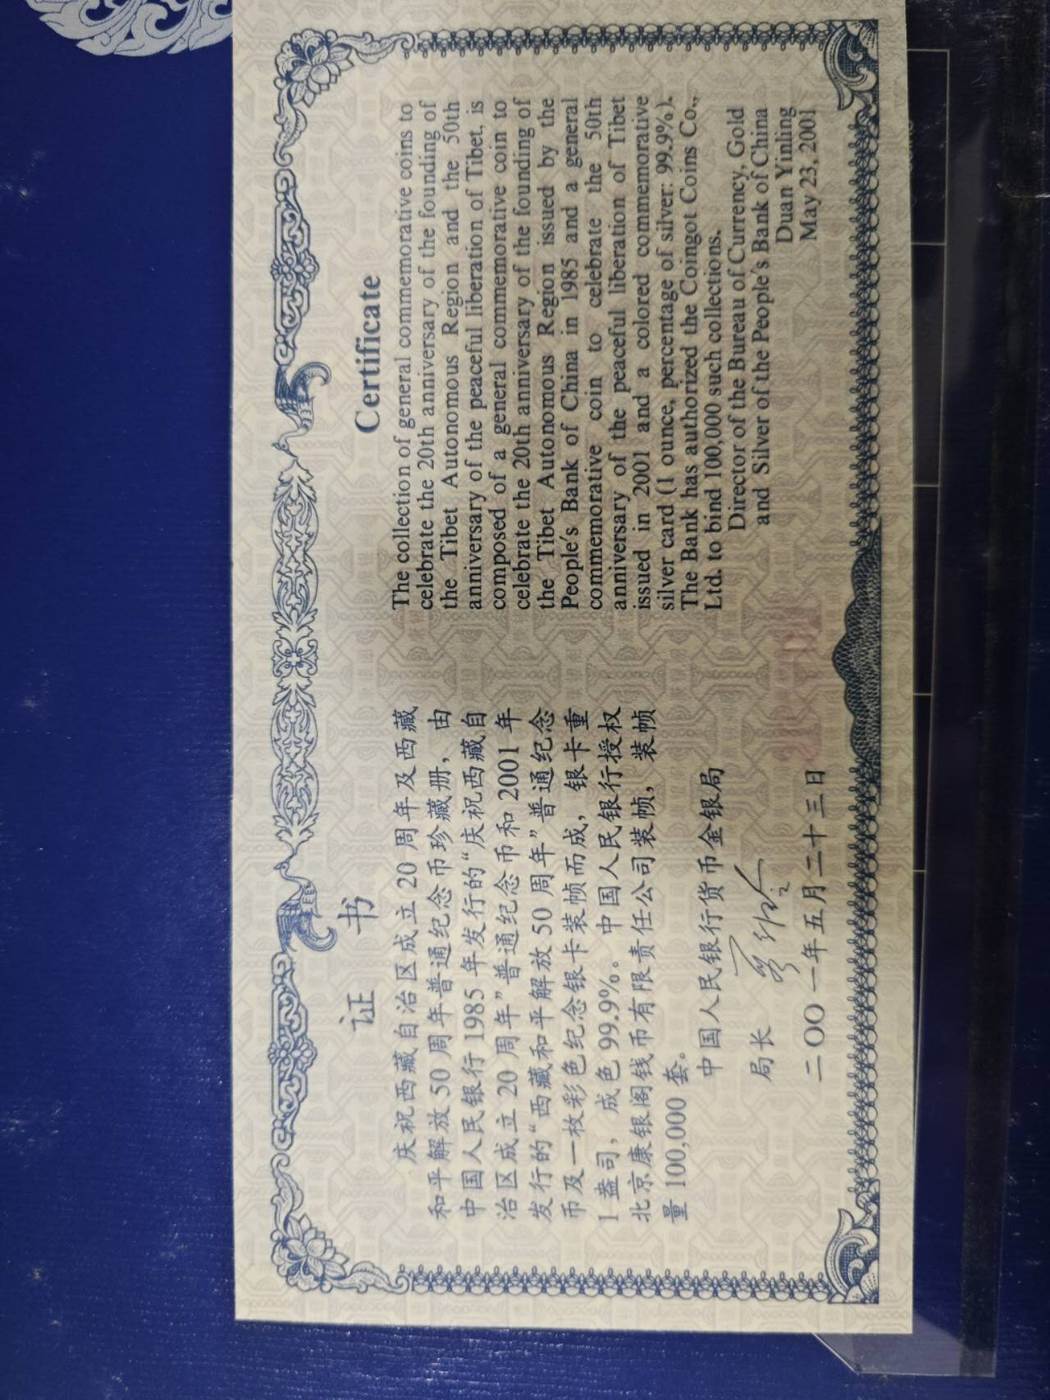 证 书
庆祝西藏自治区成立 20 周年及西藏
和平解放 50 周年普通纪念币珍藏册，由
中国人民银行 1985 年发行的“庆祝西藏自
治区成立 20 周年”普通纪念币和 2001 年
发行的“西藏和平解放 50 周年”普通纪念
币及一枚彩色纪念银卡装帧而成，银卡重
1 盎司，成色 99.9%。中国人民银行授权
北京康银阁钱币有限责任公司装帧，装帧
量 100,000 套。
中国人民银行货币金银局
局长
二〇〇一年五月二十三日
Certificate
The collection of general commemorative coins to
celebrate the 20th anniversary of the founding of
the Tibet Autonomous Region and the 50th
anniversary of the peaceful liberation of Tibet, is
composed of a general commemorative coin to
celebrate the 20th anniversary of the founding of
the Tibet Autonomous Region issued by the
People's Bank of China in 1985 and a general
commemorative coin to celebrate the 50th
anniversary of the peaceful liberation of Tibet
issued in 2001 and a colored commemorative
silver card (1 ounce, percentage of silver: 99.9%).
The Bank has authorized the Coingot Coins Co.,
Ltd. to bind 100,000 such collections.
Director of the Bureau of Currency, Gold
and Silver of the People's Bank of China
Duan Yinling
May 23, 2001